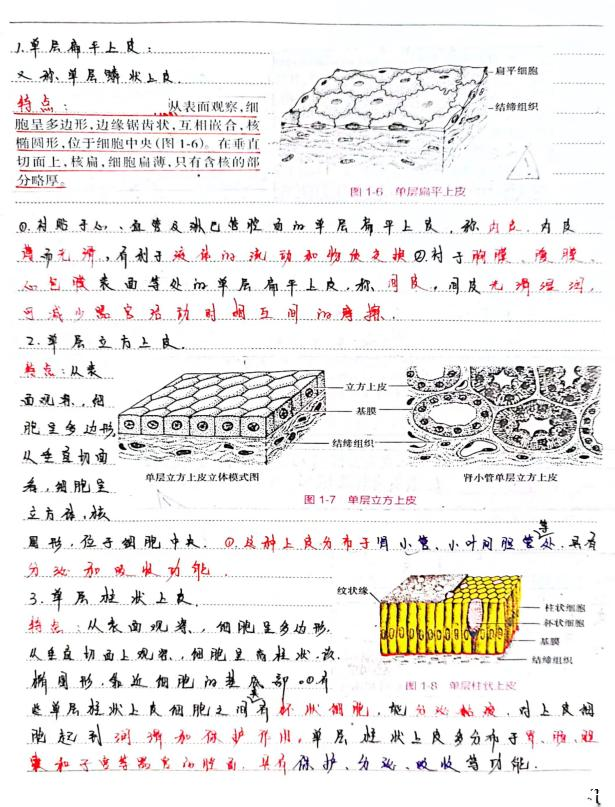 1.单层扁平上皮：
又称：单层鳞状上皮．
特点： 从表面观察,细
胞呈多边形,边缘锯齿状,互相嵌合,核
椭圆形,位于细胞中央(图1-6)。在垂直
切面上,核扁,细胞扁薄,只有含核的部
分略厚。
扁平细胞
结缔组织
图1-6 单层扁平上皮
①.衬贴于心、血管及淋巴管腔面的单层扁平上皮，称内皮．内皮
薄而光滑，有利于液体的流动和物质交换②衬于胸膜、腹膜、
心包膜表面等处的单层扁平上皮，称间皮，间皮光滑湿润，
可减少器官活动时相互间的摩擦．
2.单层立方上皮．
特点：从表
面观察，细
胞呈多边形，
从垂直切面
看，细胞呈
立方体，核
立方上皮
基膜
结缔组织
单层立方上皮立体模式图
肾小管单层立方上皮
图1-7 单层立方上皮
圆形，位于细胞中央．①.这种上皮分布于肾小管、小叶间胆管等处，具有
分泌和吸收功能．
3.单层柱状上皮．
特点：从表面观察，细胞呈多边形．
从垂直切面上观察，细胞呈高柱状，核
椭圆形，靠近细胞的基底部．①有
些单层柱状上皮细胞之间有杯状细胞，能分泌粘液，对上皮细
胞起到润滑和保护作用，单层柱状上皮多分布于胃、肠、胆
囊和子宫等器官的腔面，具有保护、分泌、吸收等功能．
纹状缘
柱状细胞
杯状细胞
基膜
结缔组织
图1-8 单层柱状上皮